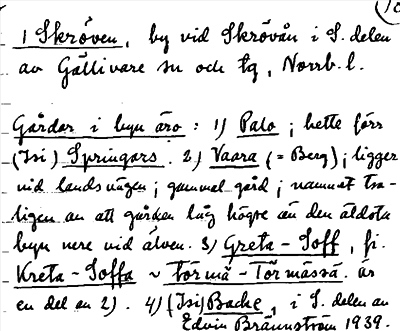 1 Skröven, by vid Skrövån i S. delen
av Gällivare sn och tg, Norrb. l.
Gårdar i byn äro : 1) Palo ; hette förr
(Isi) Springars. 2) Vaara (= Berg) ; ligger
vid landsvägen ; gammal gård ; namnet tro-
ligen av att gården låg högre än den äldsta
byn nere vid älven. 3) Greta-Soff, fi.
Kreta-Soffa ~ törmä-Törmässä. är
en del av 2). 4) (Isi) Backe, i S. delen av
Edvin Brännström 1939.